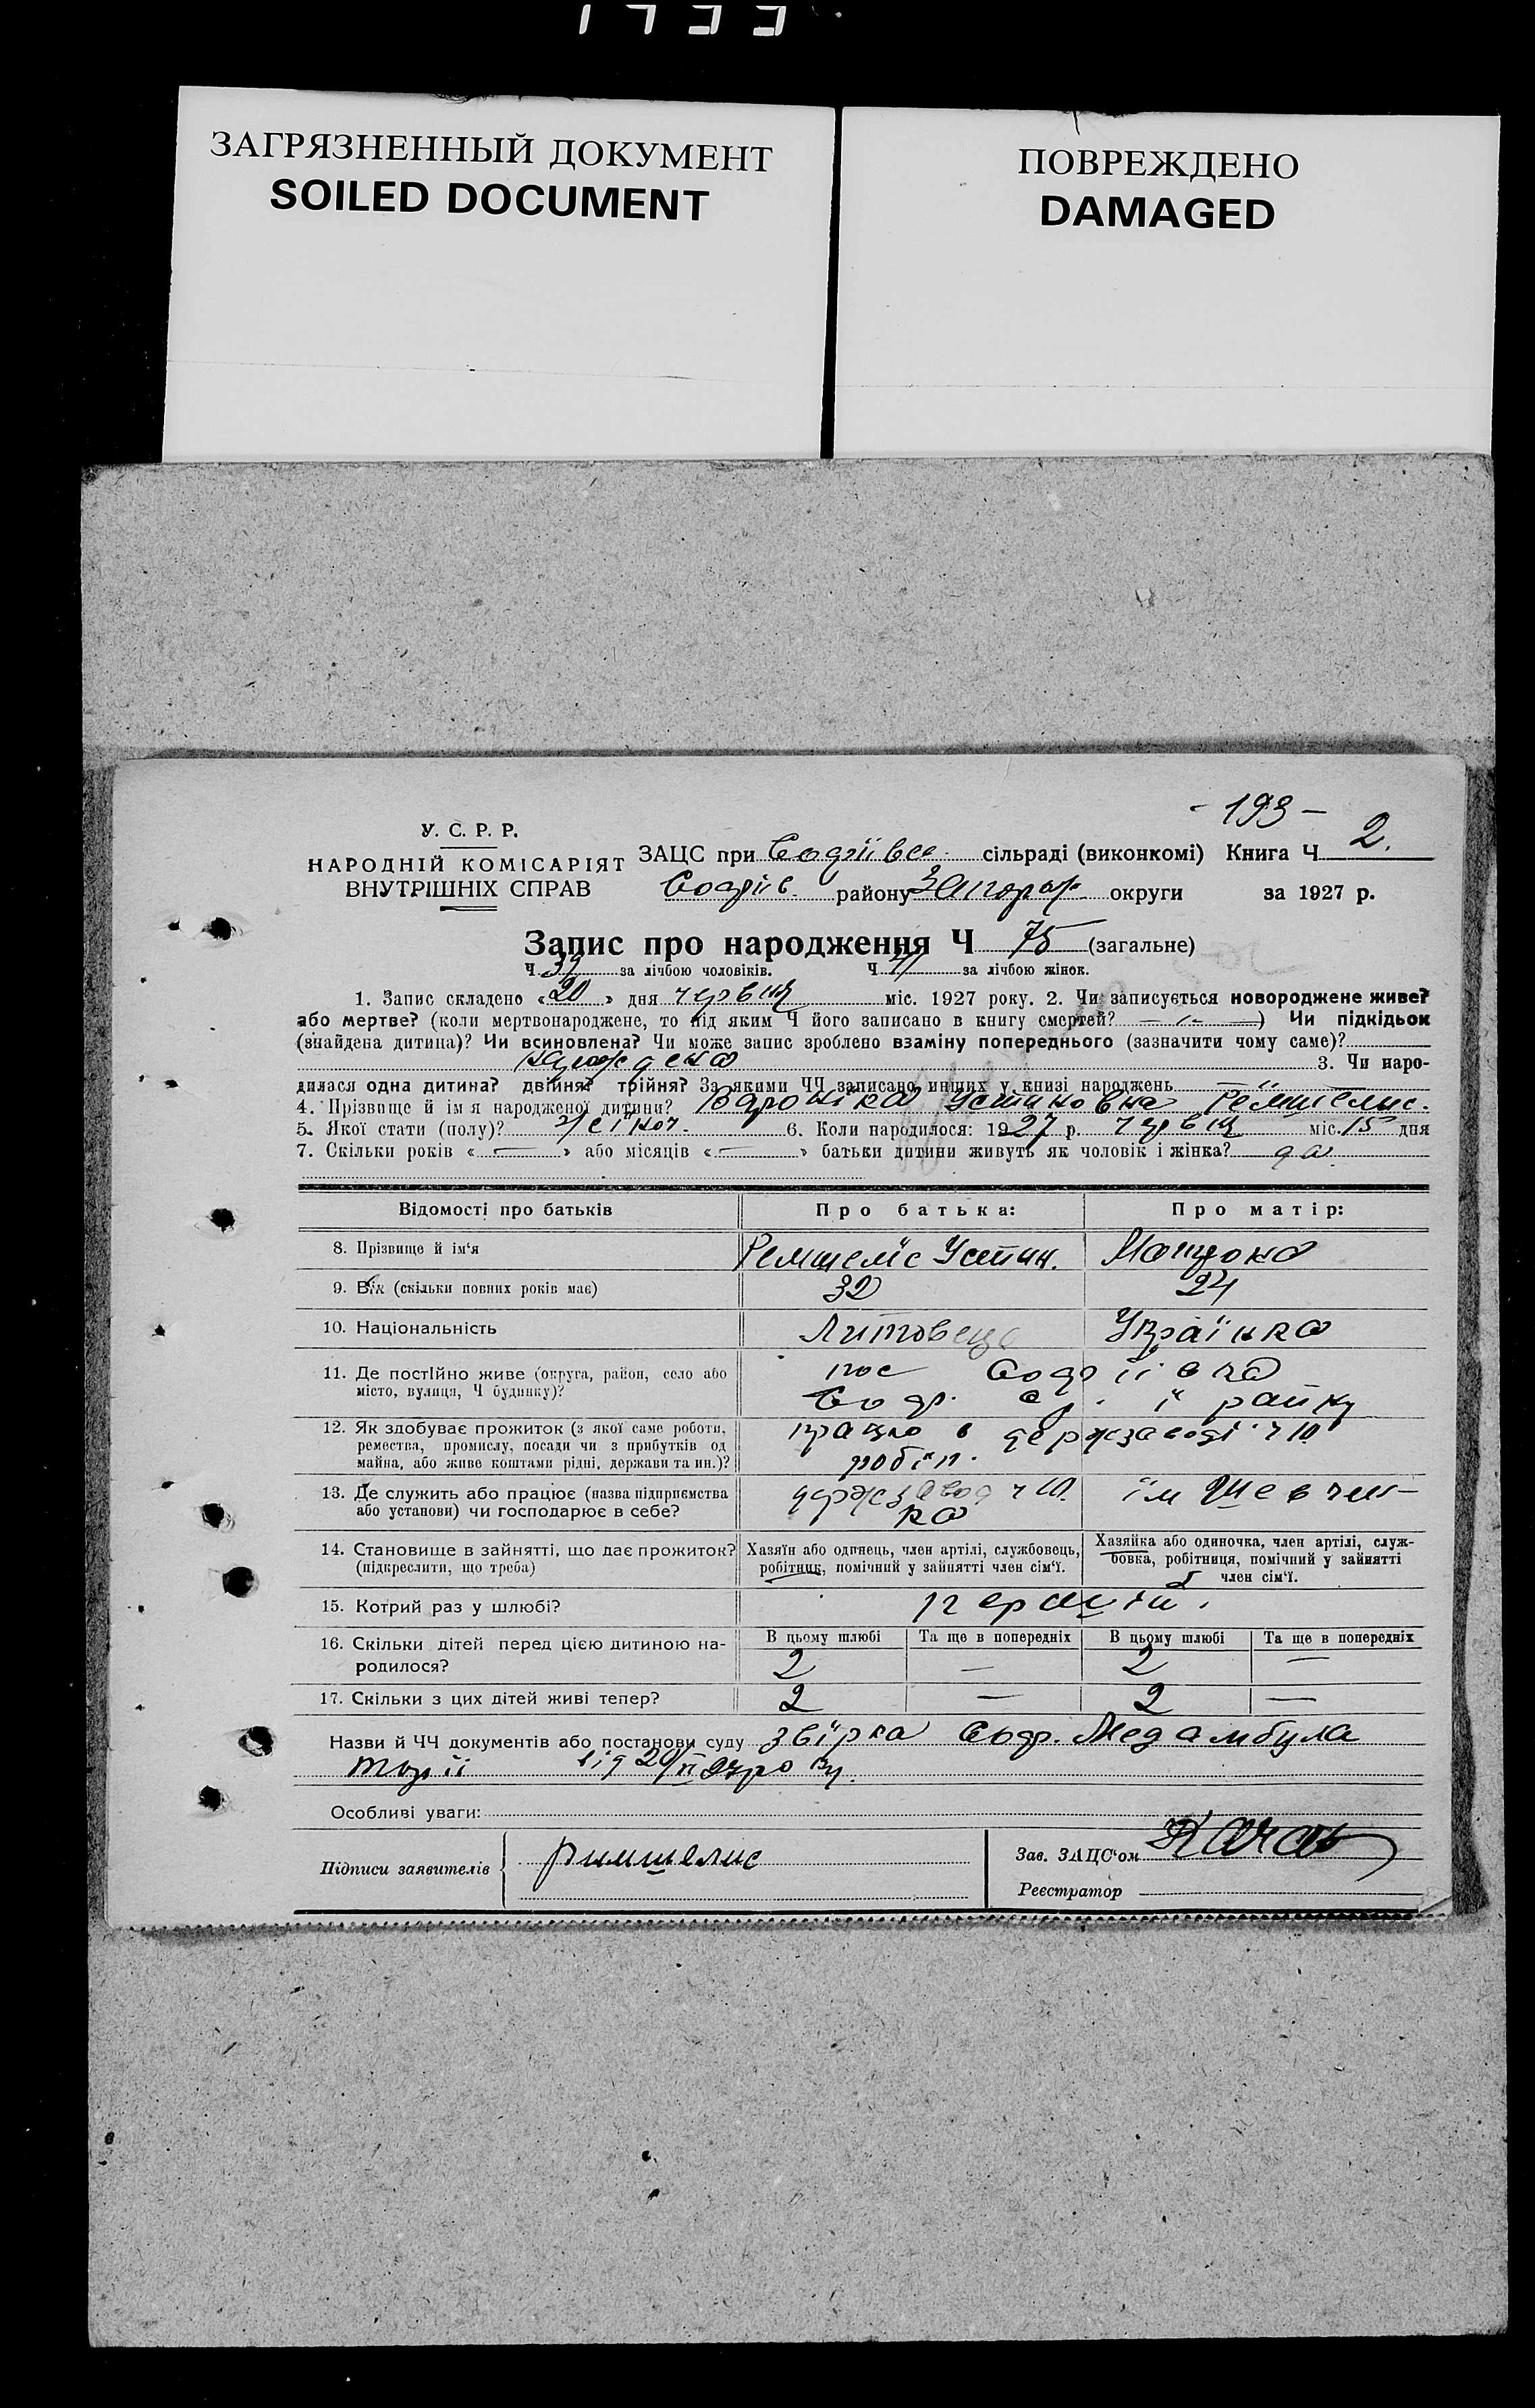 1733
ЗАГРЯЗНЕННЫЙ ДОКУМЕНТ
SOILED DOCUMENT
ПОВРЕЖДЕНО
DAMAGED
- 193 -
У. С. Р. Р.
НАРОДНІЙ КОМІСАРІЯТ
ВНУТРІШНІХ СПРАВ
ЗАЦС при Софіївсь. сільраді (виконкомі) Книга Ч 2.
Софіїв. району Запорож. округи за 1927 р.
Запис про народження Ч 75 (загальне)
Ч за лічбою чоловіків. Ч за лічбою жінок.
1. Запис складено «20» дня червця міс. 1927 року. 2. Чи записується новороджене живе?
або мертве? (коли мертвонароджене, то під яким Ч його записано в книгу смертей? ) Чи підкідьок
(знайдена дитина)? Чи всиновлена? Чи може запис зроблено взаміну попереднього (зазначити чому саме)?
3. Чи наро-
дилася одна дитина? двійня? трійня? За якими ЧЧ записано инших у книзі народжень
4. Прізвище й ім я народженої дитини? Вароніка Устиновна Ремшеліс.
5. Якої стати (полу)? жіноч. 6. Коли народилося: 1927 р. червця міс. 15 дня
7. Скільки років « — » або місяців « — » батьки дитини живуть як чоловік і жінка? да
Відомості про батьків
Про батька:
Про матір:
8. Прізвище й ім'я
Ремшеліс Устин.
9. Вік (скільки повних років має)
32
24
10. Національність
Литовець
Українка
11. Де постійно живе (округа, район, село або
місто, вулиця, Ч будинку)?
пос Софіївка
Соф. району
12. Як здобуває прожиток (з якої саме роботи,
ремества, промислу, посади чи з прибутків од
майна, або живе коштами рідні, держави та ин.)?
працю в держзаводі ч 10
робіт.
13. Де служить або працює (назва підприємства
або установи) чи господарює в себе?
держзавод ч 10. ім Шевчен-
ка
14. Становище в зайнятті, що дає прожиток?
(підкреслити, що треба)
Хазяїн або одинець, член артілі, службовець,
робітник, помічний у зайнятті член сім'ї.
Хазяйка або одиночка, член артілі, служ-
бовка, робітниця, помічний у зайнятті
член сім'ї.
15. Котрий раз у шлюбі?
перший.
16. Скільки дітей перед цією дитиною на-
родилося?
В цьому шлюбі
Та ще в попередніх
В цьому шлюбі
Та ще в попередніх
2 — 2 —
17. Скільки з цих дітей живі тепер?
2 — 2 —
Назви й ЧЧ документів або постанови суду звірка Соф. Медамбула
торії від 20/VI
Особливі уваги:
Підписи заявителів
Римшелис
Зав. ЗАЦС'ом
Реєстратор